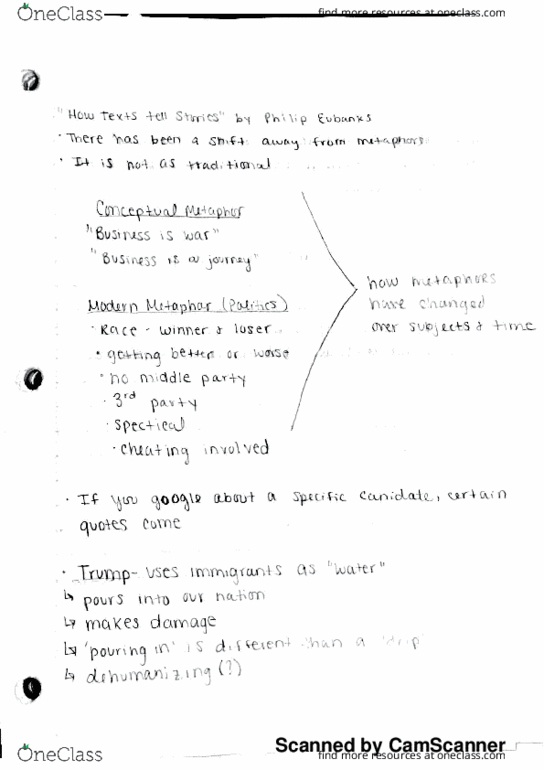 OneClass
find more resources at oneclass.com
"How Texts tell Stories" by Philip Eubanks
· There has been a shift away from metaphors
· It is not as traditional
Conceptual Metaphor
"Business is war"
"Business is a journey"
how metaphors
have changed
over subjects & time
Modern Metaphor (Politics)
· Race - winner & loser
· getting better or worse
· no middle party
· 3rd party
· spectical
· cheating involved
· If you google about a specific canidate, certain
quotes come
· Trump- uses immigrants as "water"
↳ pours into our nation
↳ makes damage
↳ 'pouring in' is different than a 'drip'
↳ dehumanizing (?)
Scanned by CamScanner
OneClass
find more resources at oneclass.com